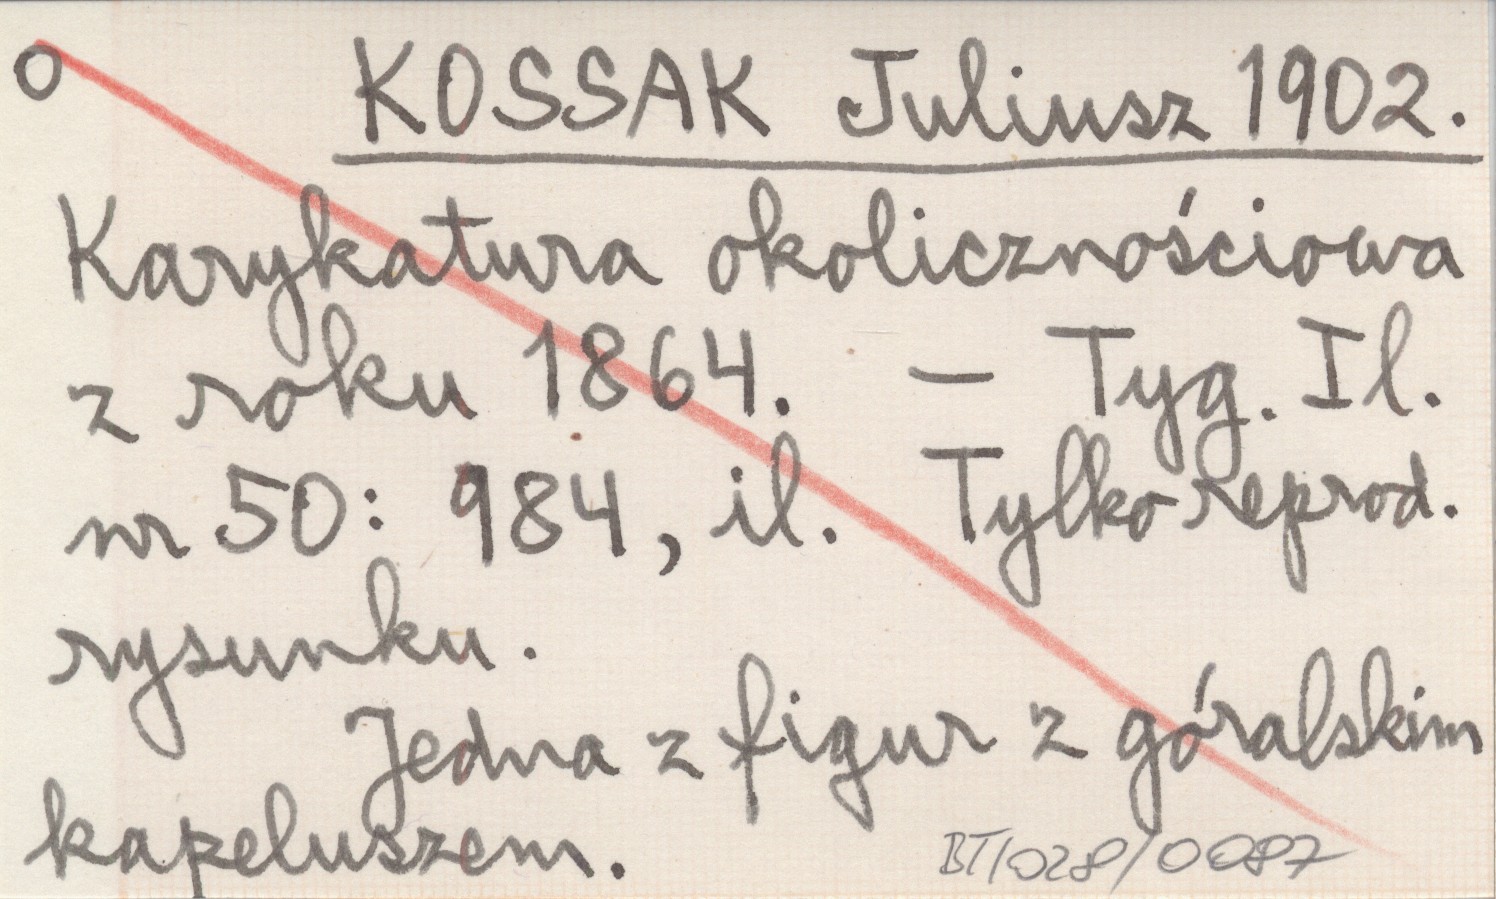 o KOSSAK Juliusz 1902.
Karykatura okolicznościowa
z roku 1864. – Tyg. Il.
nr 50: 984, il. Tylko reprod.
rysunku.
Jedna z figur z góralskim
kapeluszem.
BT/028/0087